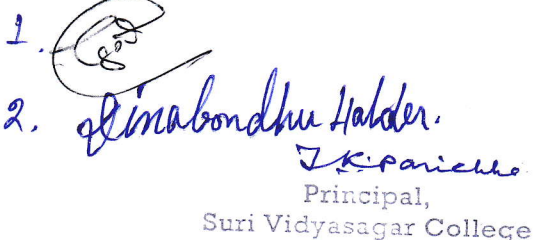 1.
2. Dinabondhu Halder.
T.K. Parichha
Principal,
Suri Vidyasagar College